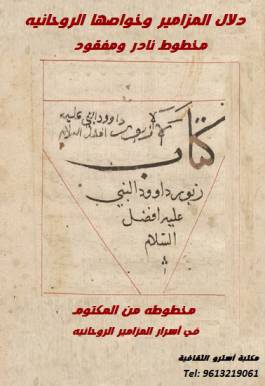 دلال المزامير وخواصها الروحانيه
مخطوط نادر ومفقود
داوود النبي عليه
افضل السلام
كتاب
زبور داوود النبي
عليه افضل
السلام
مخطوطه من المكتوم
في أسرار المزامير الروحانيه
مكتبة أسترو الثقافية
Tel: 9613219061